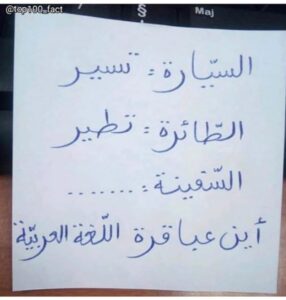 @top100_fact
§
Maj
السّيّارة : تسير
الطّائرة : تطير
السّفينة : .......
أين عباقرة اللّغة العربيّة